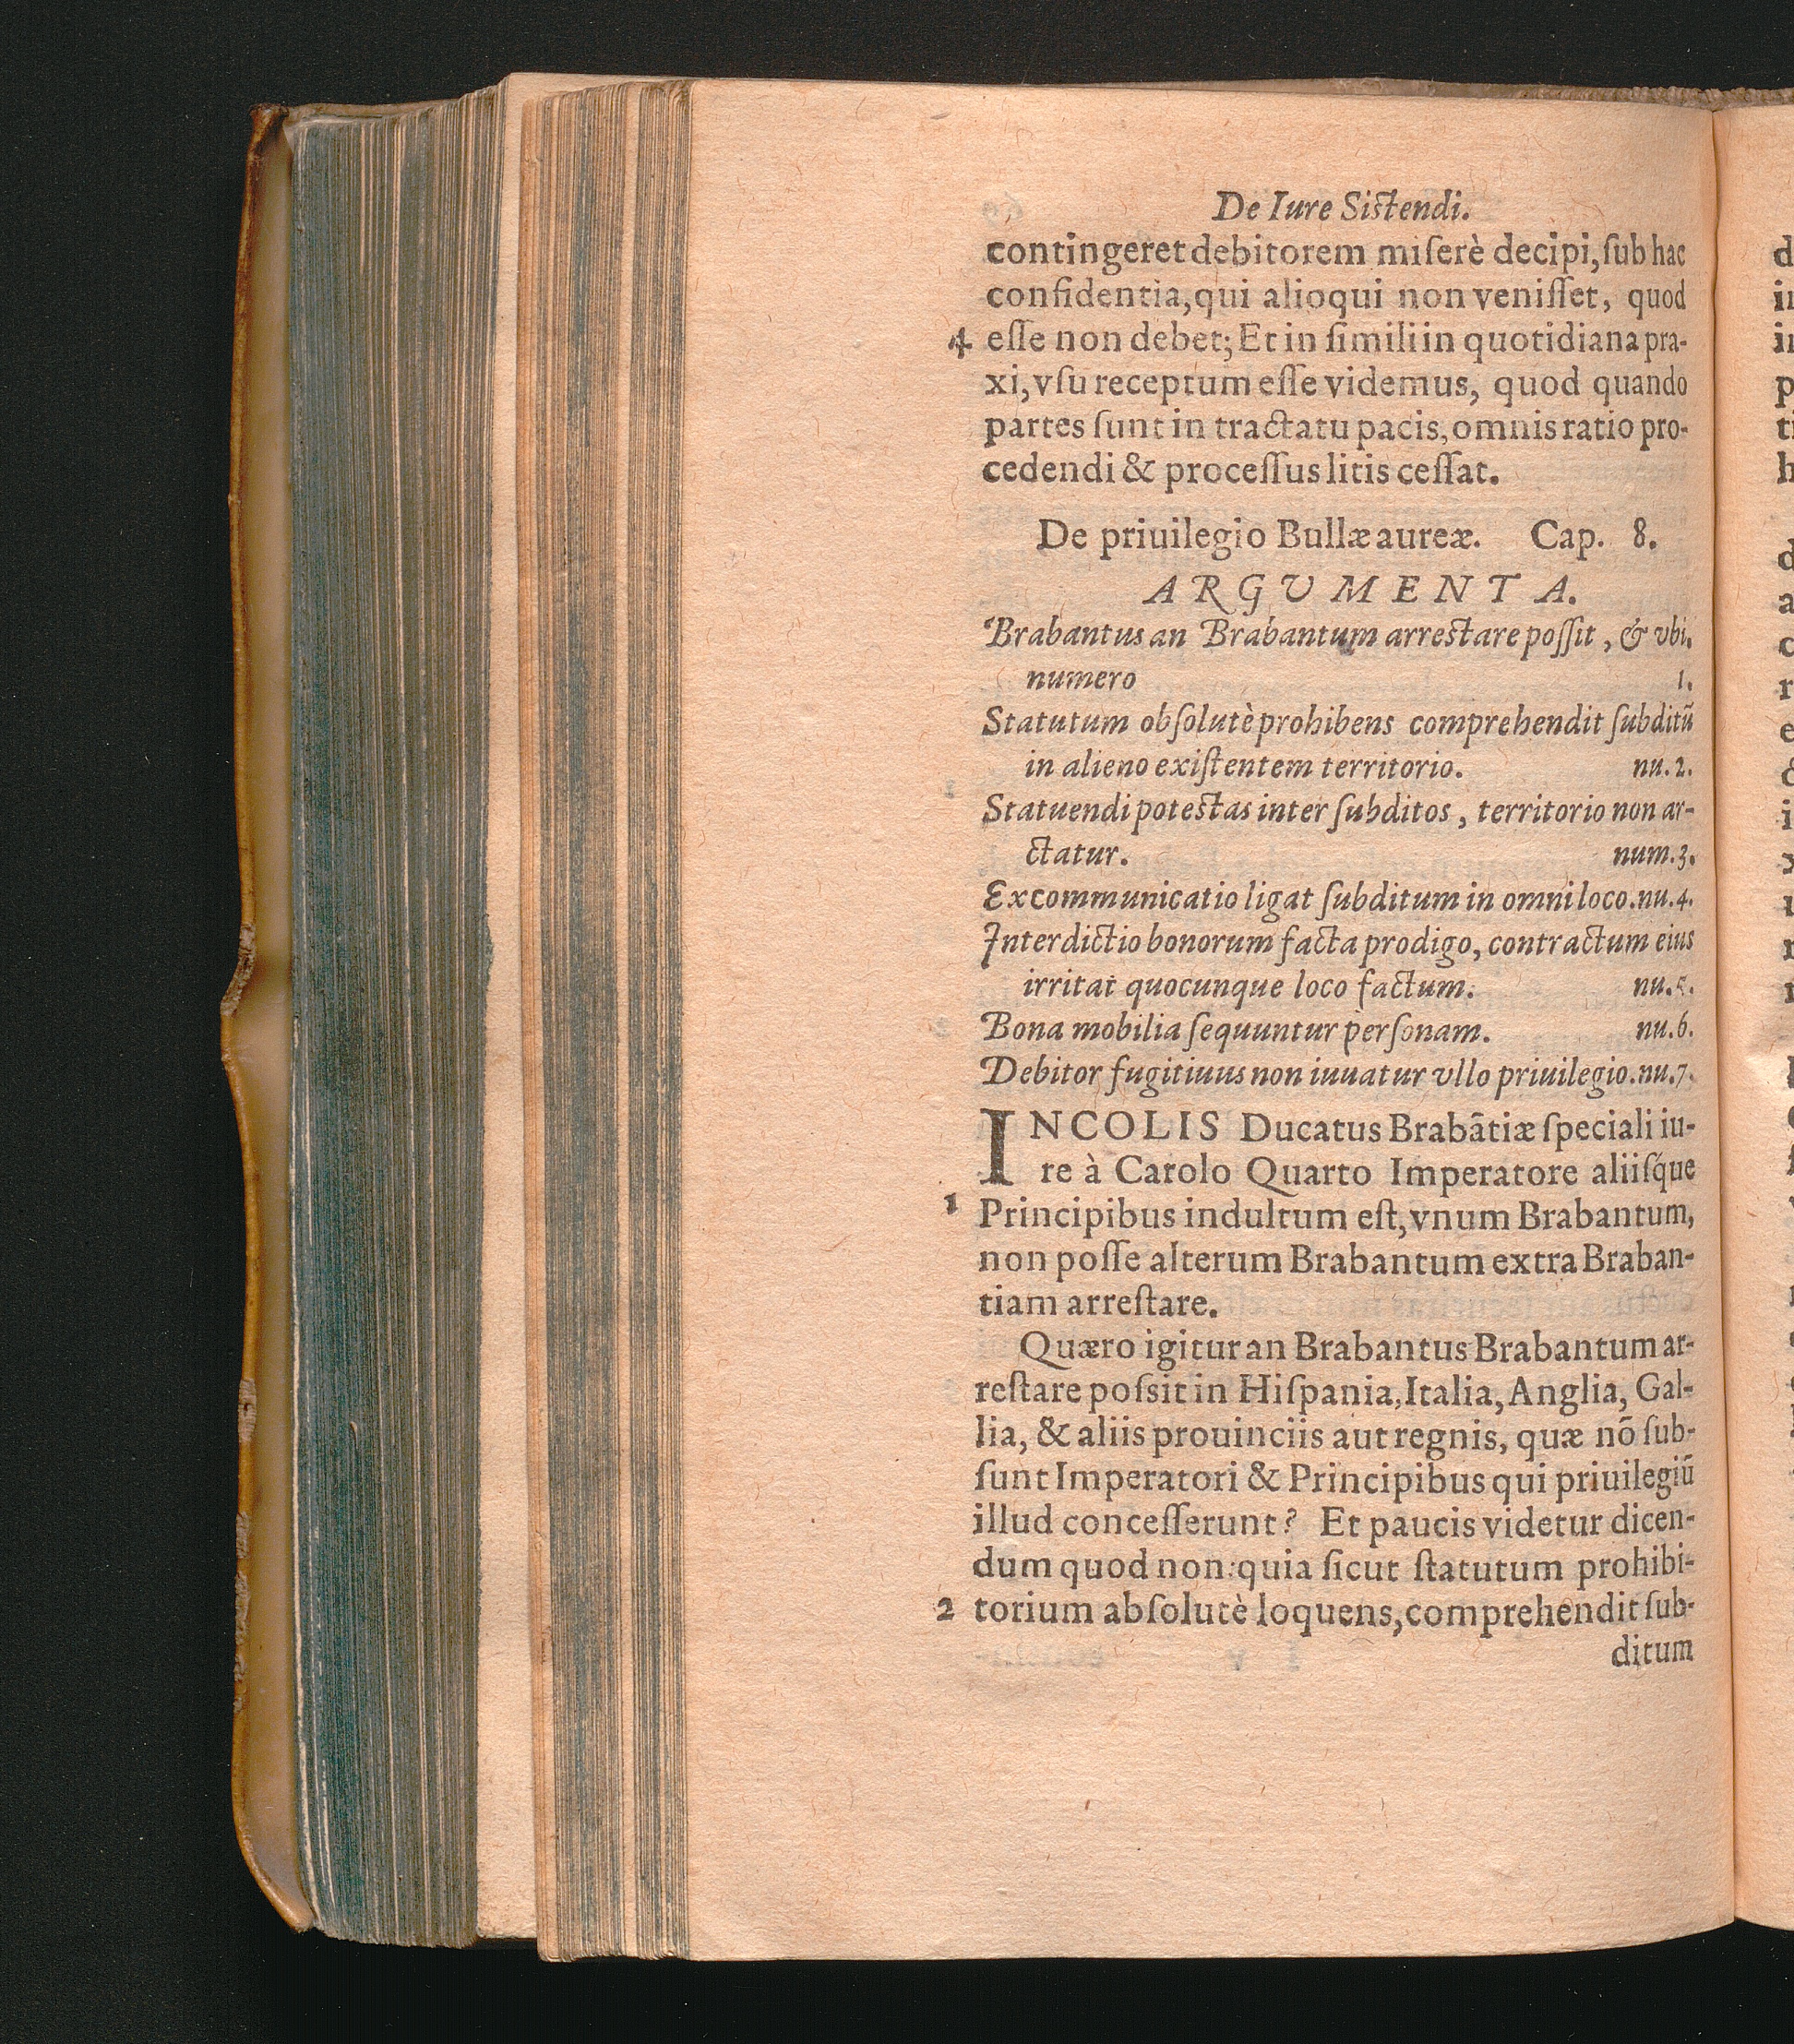 De Iure Sistendi.
contingeret debitorem miſerè decipi, ſub hac
confidentia, qui alioqui non veniſſet, quod
4 eſſe non debet; Et in ſimili in quotidiana pra-
xi, vſu receptum eſſe videmus, quod quando
partes ſunt in tractatu pacis, omnis ratio pro-
cedendi & proceſſus litis ceſſat.
De priuilegio Bullæ aureæ. Cap. 8.
ARGVMENTA.
Brabantus an Brabantum arrestare poſſit, & vbi.
numero 1.
Statutum obſolutè prohibens comprehendit ſubditū
in alieno exiſtentem territorio. nu.2.
Statuendi potestas inter ſubditos, territorio non ar-
ctatur. num.3.
Excommunicatio ligat ſubditum in omni loco. nu.4.
Interdictio bonorum facta prodigo, contractum eius
irritat quocunque loco factum. nu.5.
Bona mobilia ſequuntur perſonam. nu.6.
Debitor fugitiuus non iuuatur vllo priuilegio. nu.7.
INCOLIS Ducatus Brabātiæ ſpeciali iu-
re à Carolo Quarto Imperatore aliiſq́ue
1 Principibus indultum eſt, vnum Brabantum,
non poſſe alterum Brabantum extra Braban-
tiam arreſtare.
Quæro igitur an Brabantus Brabantum ar-
reſtare poſsit in Hiſpania, Italia, Anglia, Gal-
lia, & aliis prouinciis aut regnis, quæ nō ſub-
ſunt Imperatori & Principibus qui priuilegiū
illud conceſſerunt? Et paucis videtur dicen-
dum quod non: quia ſicut ſtatutum prohibi-
2 torium abſolutè loquens, comprehendit ſub-
ditum